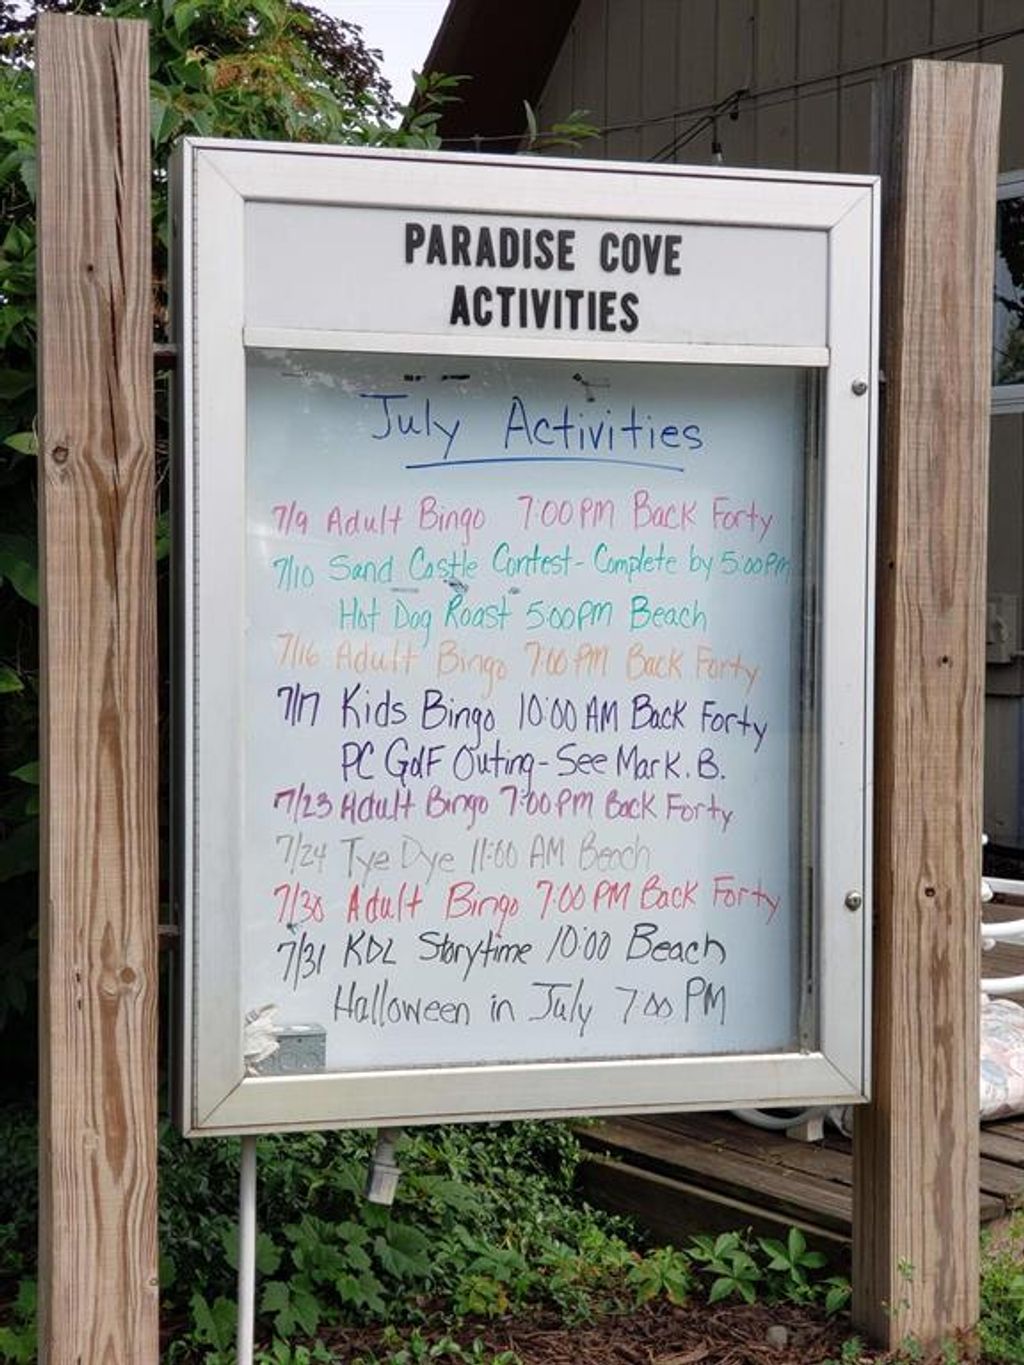 PARADISE COVE
ACTIVITIES
July Activities
7/9 Adult Bingo 7:00 PM Back Forty
7/10 Sand Castle Contest - Complete by 5:00 PM
Hot Dog Roast 5:00 PM Beach
7/16 Adult Bingo 7:00 PM Back Forty
7/17 Kids Bingo 10:00 AM Back Forty
PC Golf Outing - See Mark. B.
7/23 Adult Bingo 7:00 PM Back Forty
7/24 Tye Dye 11:00 AM Beach
7/30 Adult Bingo 7:00 PM Back Forty
7/31 KDL Storytime 10:00 Beach
Halloween in July 7:00 PM